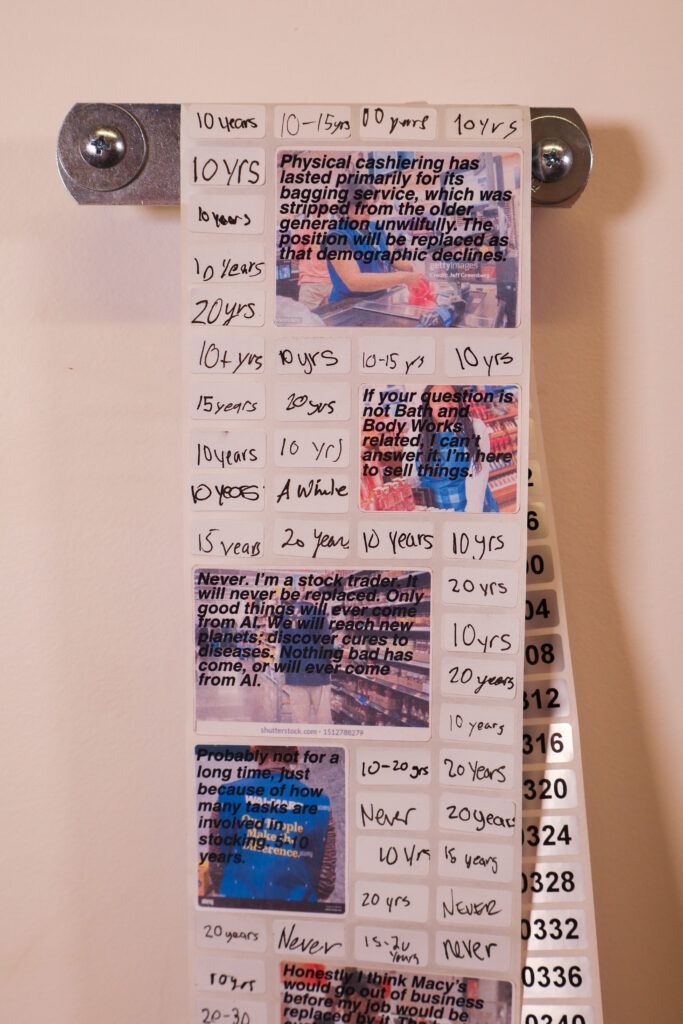 10 years 10-15yrs 10 years 10yrs
10 yrs
10 years
10 Years
20yrs
Physical cashiering has
lasted primarily for its
bagging service, which was
stripped from the older
generation unwilfully. The
position will be replaced as
that demographic declines.
gettyimages
Credit: Jeff Greenberg
10+ yrs 10 yrs 10-15 yrs 10 yrs
15 years 20 yrs
10 years 10 yrs
10 years A While
If your question is
not Bath and
Body Works
related, I can't
answer it. I'm here
to sell things.
15 years 20 years 10 years 10 yrs
Never. I'm a stock trader. It
will never be replaced. Only
good things will ever come
from AI. We will reach new
planets; discover cures to
diseases. Nothing bad has
come, or will ever come
from AI.
shutterstock.com · 1512788279
20 yrs
10 yrs
20 years
10 years
Probably not for a
long time, just
because of how
many tasks are
involved in
stocking. 5-10
years.
Our People
Make the
Difference.
10-20 yrs 20 Years
Never 20 years
10 Yrs 15 years
20 yrs NEVER
20 years Never 15-20 Years never
10 yrs
20-30
Honestly I think Macy's
would go out of business
before my job would be
replaced by it.
2
6
0
04
08
312
316
320
0324
0328
0332
0336